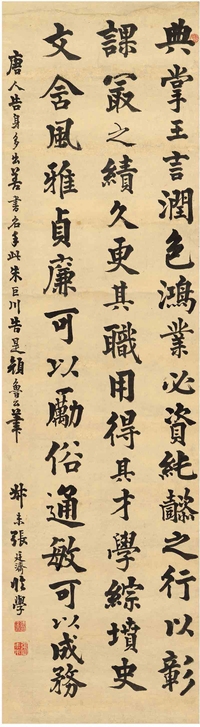 典掌王言潤色鴻業必資純懿之行以彰
課㝡之績久更其職用得其才學綜墳史
文含風雅貞廉可以勵俗通敏可以成務
唐人告身多出善書名手此朱巨川告是顏魯公筆
叔未張廷濟臨學